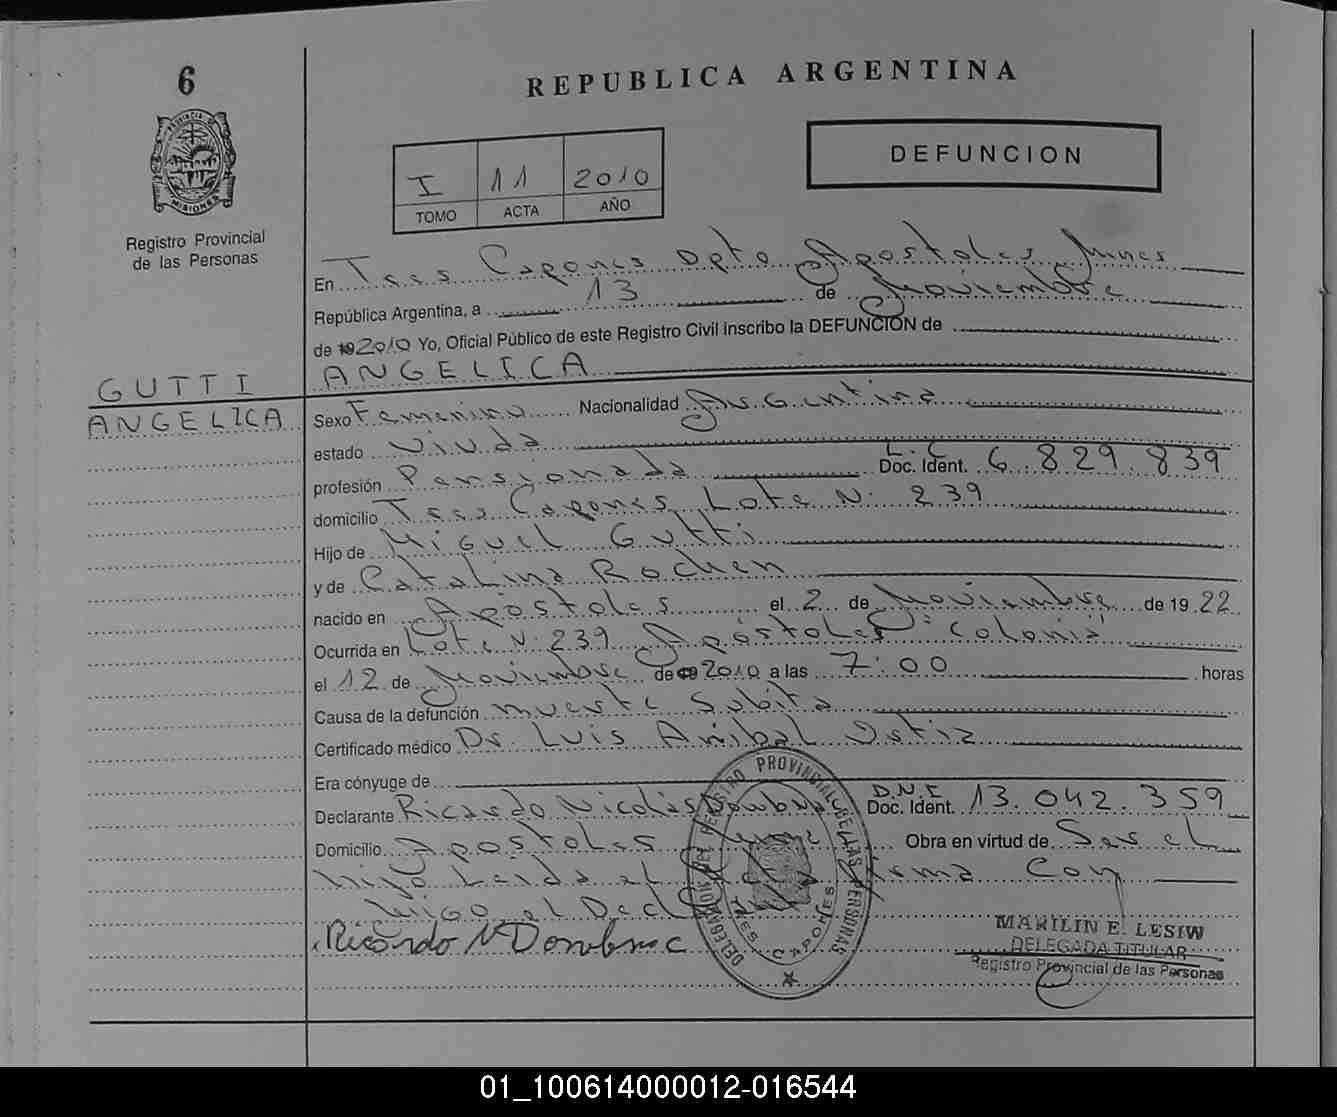 6
REPUBLICA ARGENTINA
PROVINCIA DE
MISIONES
Registro Provincial
de las Personas
I 11 2010
TOMO ACTA AÑO
DEFUNCION
En Tres Capones Dpto Apostoles Mnes
República Argentina, a 13 de Noviembre
de 19 2010 Yo, Oficial Público de este Registro Civil inscribo la DEFUNCION de
GUTTI ANGELICA
ANGELICA Sexo Femenino Nacionalidad Argentina
estado Viuda
L. C
profesión Pensionada Doc. Ident. 6.829.839
domicilio Tres Capones Lote N. 239
Hijo de Miguel Gutti
y de Catalina Rochen
nacido en Apostoles el 2 de Noviembre de 19 22
Ocurrida en Lote N. 239 Apóstoles "colonia"
el 12 de Noviembre de 19 2010 a las 7:00 horas
Causa de la defunción muerte Subita
Certificado médico Dr. Luis Anibal Ortiz
Era cónyuge de
D.N.I
Declarante Ricardo Nicolás Doc. Ident. 13.042.359
Domicilio Apostoles Obra en virtud de Ser el
hijo Leida el firma Con
migo el
Ricardo N
DELEGACION DEL REGISTRO PROVINCIAL DE LAS PERSONAS
TRES CAPONES
MARILIN E. LESIW
DELEGADA TITULAR
Registro Provincial de las Personas
01_100614000012-016544